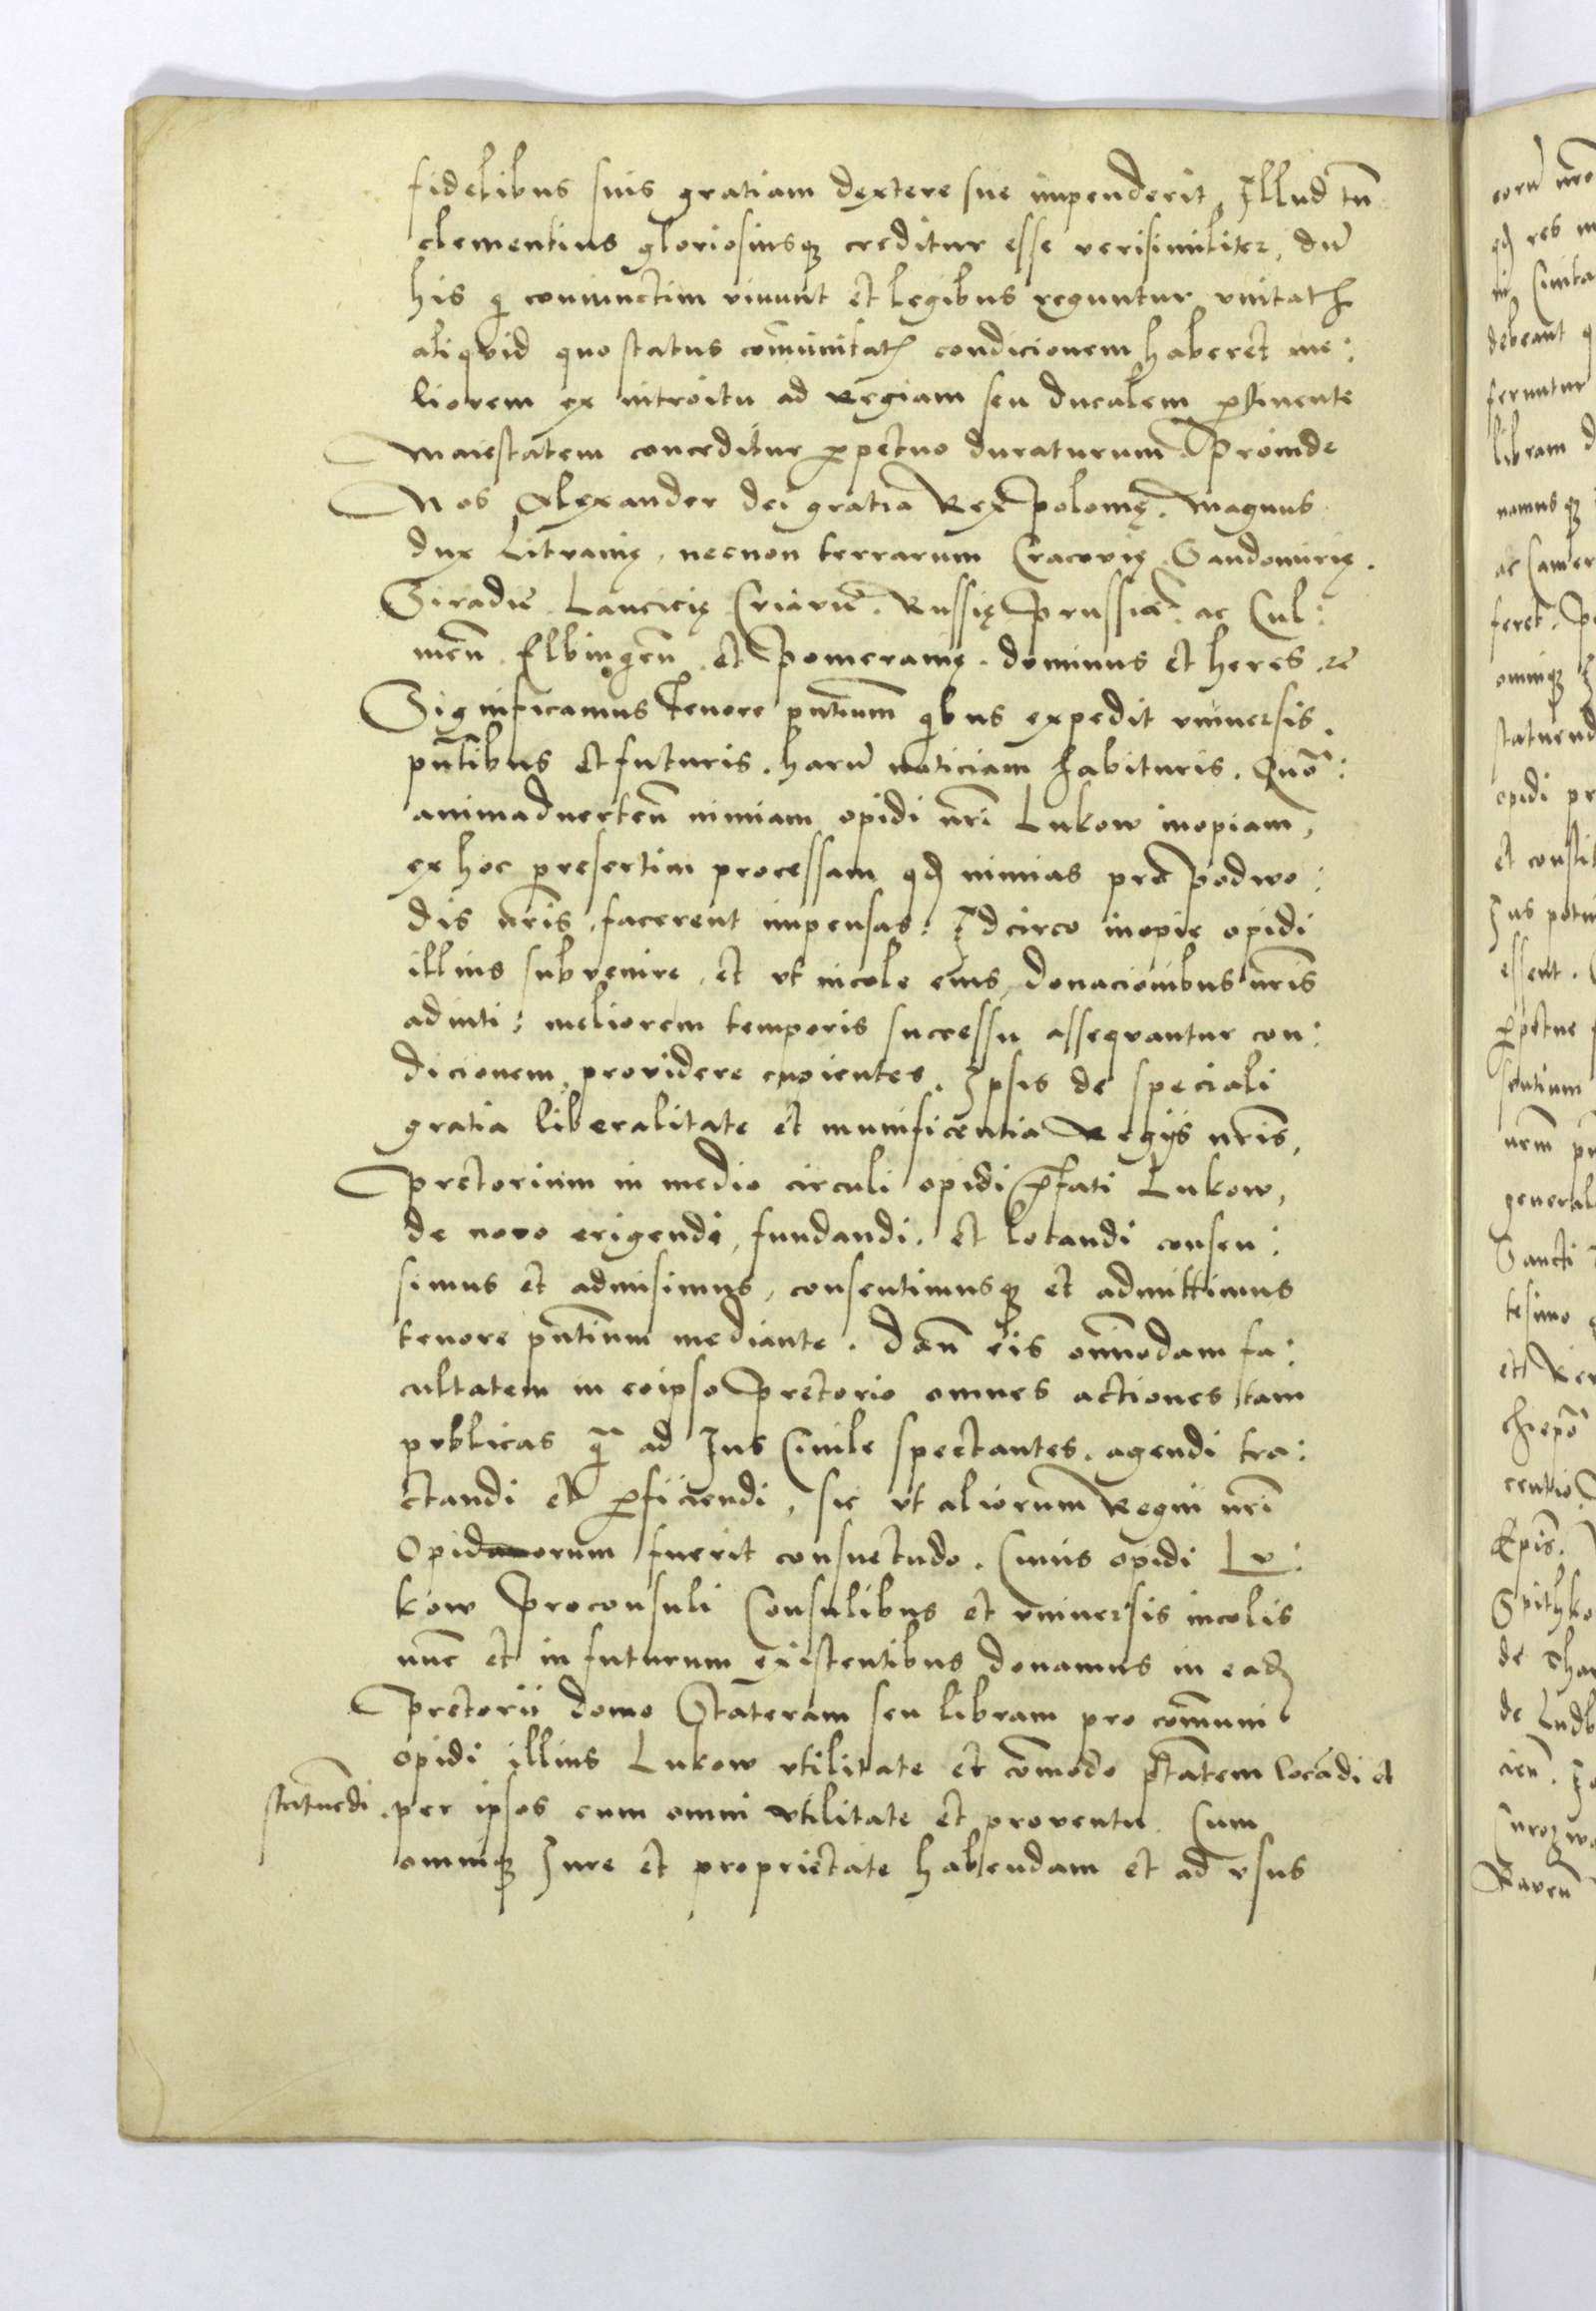 fidelibus suis gratiam dextere sue impenderit, Illud tn̄
clementius gloriosiusqȝ creditur esse verisimiliter, dū
his q coniunctim viuunt et legibus reguntur vnitatꝭ
aliquid quo status com̄unitatꝭ condicionem haberet me:
liorem ex introitu ad Regiam seu ducalem ꝑtinente
Maiestatem conceditur ꝑpetuo duraturum. Proinde
Nos Alexander dei gratia Rex polonię. Magnus
dux Litvanię, necnon terrarum Cracovię Sandomirię.
Siradiē Lancicię Cuiaviē. Russię Prussiē. ac Cul:
men̄ Elbingen̄ et Pomeranię. dominus et heres ꝛc̄
Significamus Tenore pn̄tium qbus expedit vniuersis.
pn̄tibus et futuris. harū noticiam habituris. Quō:
animaduerten̄ nimiam opidi nr̄i Lukow inopiam,
ex hoc presertim processam qđ nimias pro podwo:
dis nr̄is facerent impensas: Idcirco inopie opidi
illius subvenire, et vt incole eius, donacionibus nr̄is
adiuti: meliorem temporis successu assequantur con:
dicionem, providere cupientes. Ipsis de speciali
gratia liberalitate et munificentia Regijs nr̄is,
Pretorium in medio circuli opidi p̄fati Lukow,
de novo erigendi, fundandi. et locandi consen:
simus et admisimus, consentimusqȝ et admittimus
tenore pn̄tium mediante. Dan̄ eis om̄imodam fa:
cultatem in eoipso Pretorio omnes actiones tam
publicas q̄ ad Ius Ciuile spectantes. agendi tra:
ctandi et ꝑficiendi, sic vt aliorum Regni nr̄i
Opidorum fuerit consuetudo. Cuius opidi Lu:
kow Proconsuli Consulibus et vniuersis incolis
nūc et in futurum existentibus donamus in eadꝫ
Pretorii domo Stateram seu libram pro com̄uni
opidi illius Lukow vtilitate et cōmodo ptātem locādi et
statuēdi. per ipsos cum omni vtilitate et proventu. Cum
omniqȝ Iure et proprietate habendam et ad vsus